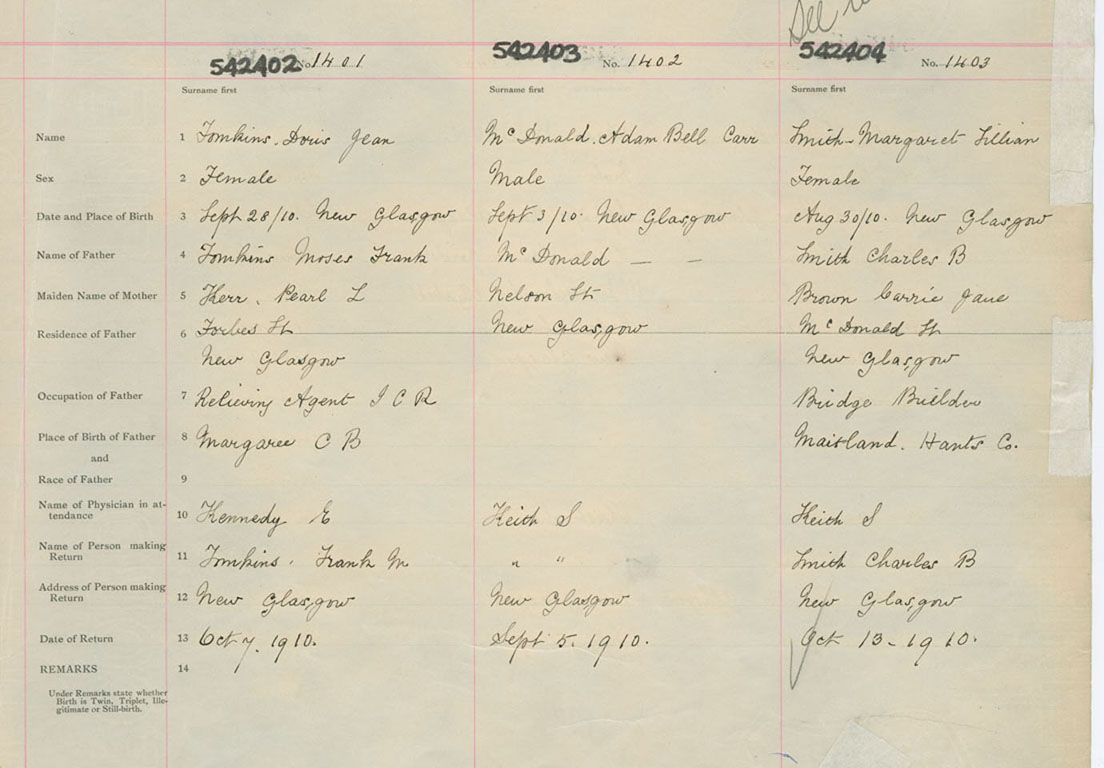 See
542402 No. 1401 542403 No. 1402 542404 No. 1403
Surname first Surname first Surname first
Name 1 Tomkins. Doris Jean McDonald. Adam Bell Carr Smith - Margaret Lillian
Sex 2 Female Male Female
Date and Place of Birth 3 Sept 28/10. New Glasgow Sept 3/10. New Glasgow Aug 30/10. New Glasgow
Name of Father 4 Tomkins Moses Frank McDonald — — Smith Charles B
Maiden Name of Mother 5 Kerr, Pearl L Nelson St Brown Carrie Jane
Residence of Father 6 Forbes St New Glasgow McDonald St
New Glasgow New Glasgow
Occupation of Father 7 Relieving Agent I C R Bridge Builder
Place of Birth of Father 8 Margaree C B Maitland. Hants Co.
and
Race of Father 9
Name of Physician in at-
tendance 10 Kennedy E Keith S Keith S
Name of Person making
Return 11 Tomkins. Frank M " " Smith Charles B
Address of Person making
Return 12 New Glasgow New Glasgow New Glasgow
Date of Return 13 Oct 7. 1910. Sept 5. 1910. Oct 13 - 1910.
REMARKS 14
Under Remarks state whether
Birth is Twin, Triplet, Ille-
gitimate or Still-birth.